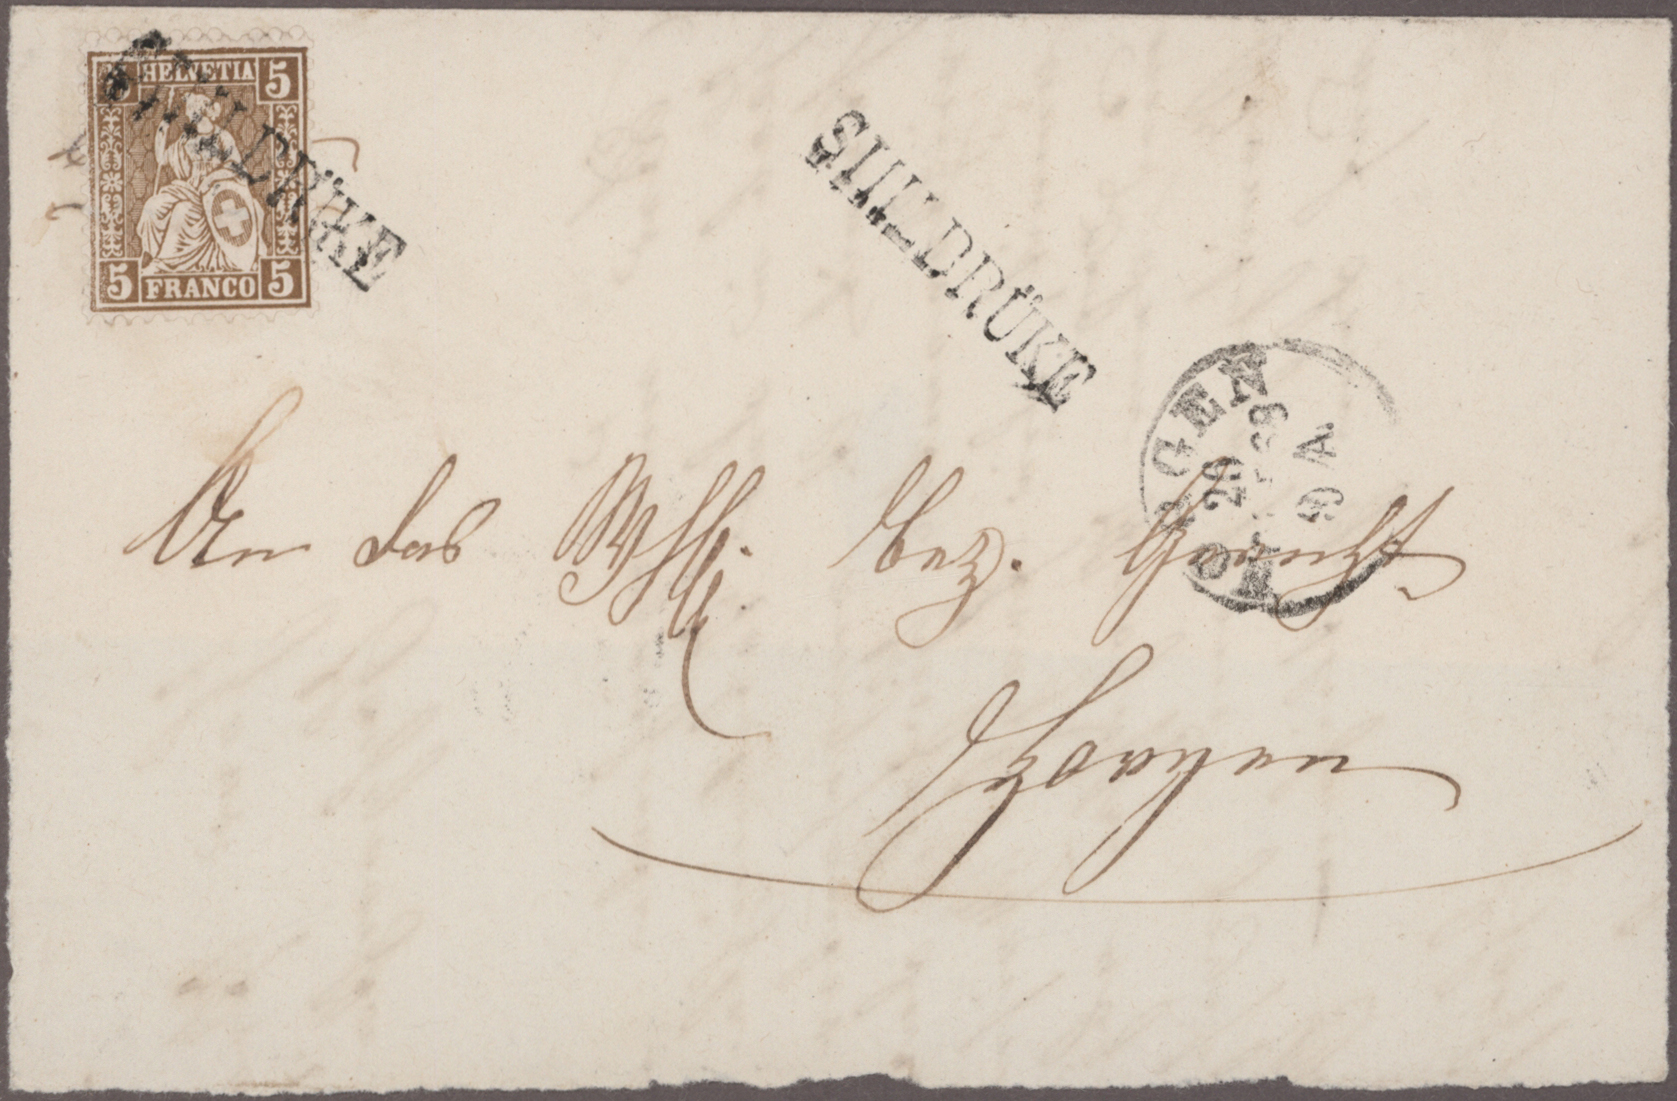 5 HELVETIA 5
5 FRANCO 5
SIHLBRÜKE
SIHLBRÜKE
HORGEN
9 A
An das Bez. Gericht
Horgen